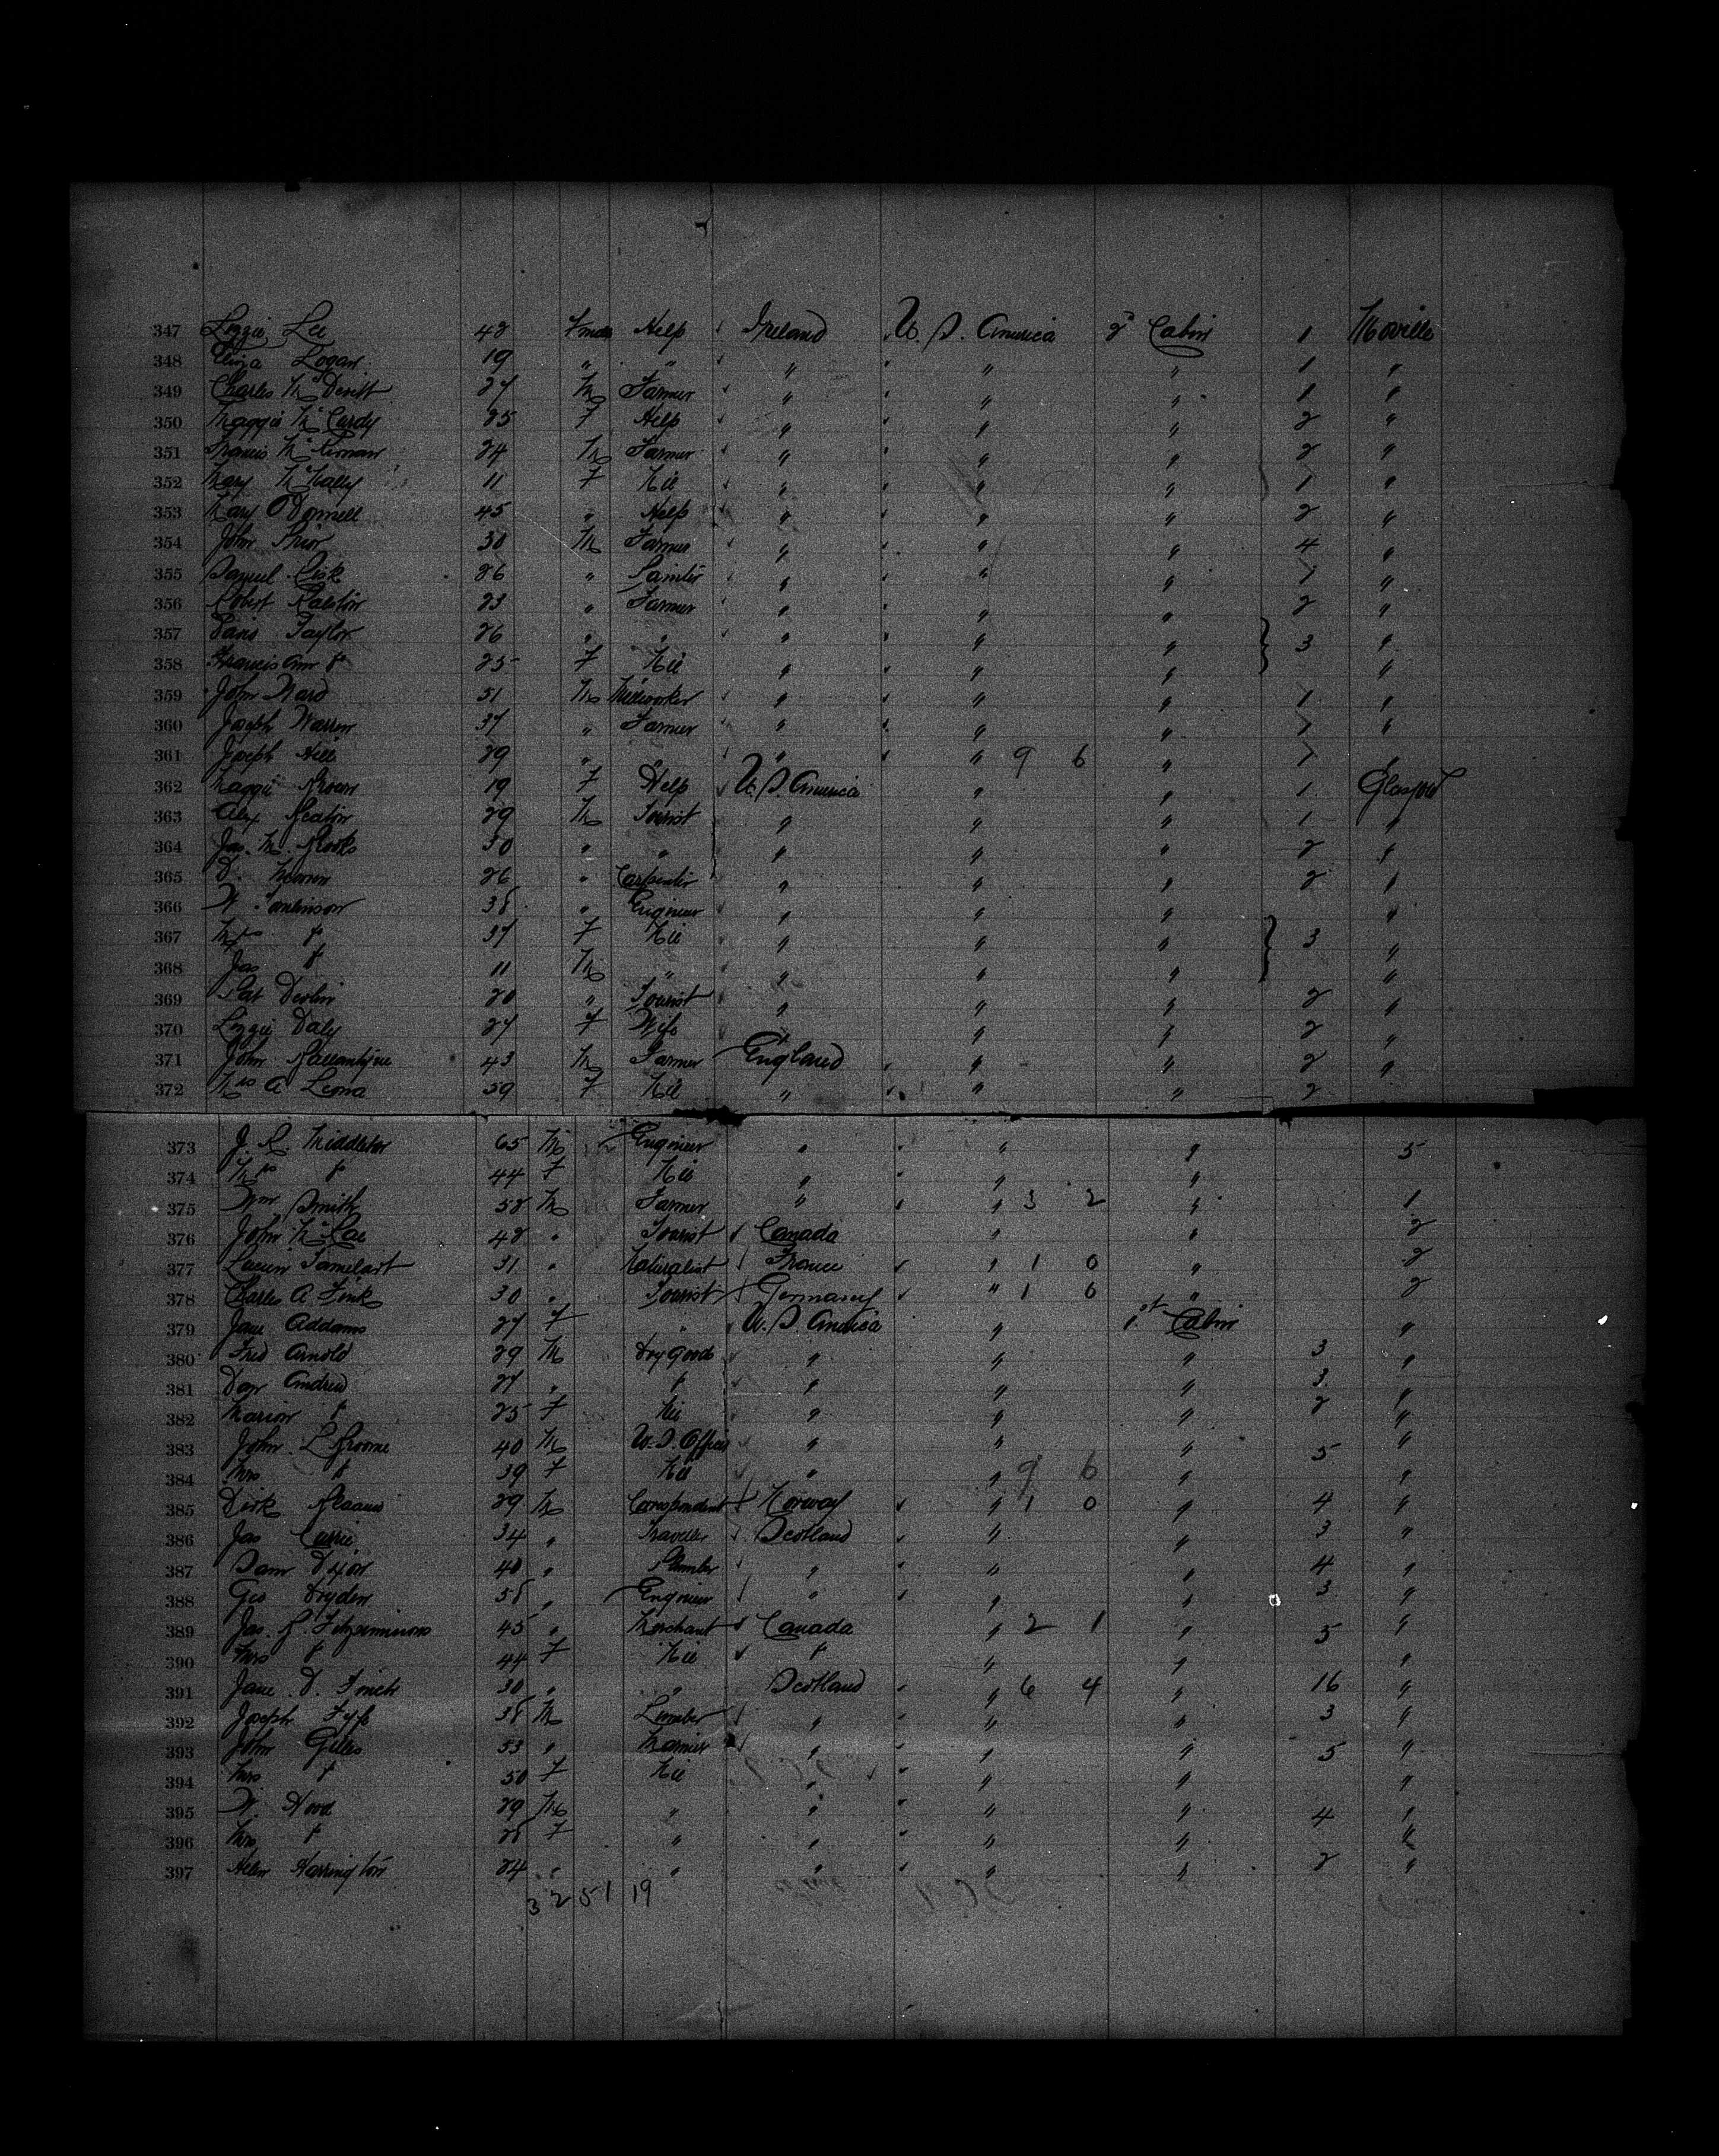 347 Lizzie Lee 42 Fmale Help Ireland U. S. America 2d Cabin 1 Moville
348 Eliza Logan 19 " " " " " 1 "
349 Charles McDevitt 27 M Farmer " " " 1 "
350 Maggie McCurdy 25 F Help " " " 2 "
351 Francis McKernan 24 M Farmer " " " 2 "
352 Mary McNally 11 F Nil " " " 1 "
353 Mary O'Donnell 45 " Help " " " 2 "
354 John Prior 30 M Farmer " " " 4 "
355 Samuel Pisk 26 " Painter " " " 1 "
356 Robert Ralston 23 " Farmer " " " 2 "
357 Davis Taylor 26 " " " " " 3 "
358 Francis Ann " 25 F Nil " " " "
359 John Ward 51 M Millworker " " " 1 "
360 Joseph Warren 37 " Farmer " " " 1 "
361 Joseph Hill 29 " " " " 9 6 " 1 "
362 Maggie Brown 19 F Help U. S. America " " 1 Glasgow
363 Alex Beaton 29 M Tourist " " " 1 "
364 Jas. M. Brooks 50 " " " " " 2 "
365 D. 26 " Carpenter " " " 2 "
366 W. Tomlinson 38 " Engineer " " " "
367 Mrs " 37 F Nil " " " 3 "
368 Jas " 11 M " " " " "
369 Pat Devlin 20 " Tourist " " " 2 "
370 Lizzie Daly 27 F Wife " " " 2 "
371 John Ballantyne 43 M Farmer England " " 2 "
372 Mrs A Leona 59 F Nil " " " 2
373 J. R. Middleton 65 M Engineer " " " 5
374 Mrs " 44 F Nil " " "
375 Wm Smith 58 M Farmer " " 3 2 " 1
376 John McRae 42 " Tourist Canada " " 2
377 Lucien 31 " Naturalist France " 1 0 " 2
378 Charles A. Fink 30 " Tourist Germany " 1 6 " 2
379 Jane Addams 27 F " U. S. America " 1st Cabin "
380 Fred Arnold 29 M Dry Goods " " " 3 "
381 Dan Andrew 27 " " " " " 3 "
382 Marion " 25 F Nil " " " 2 "
383 John L Broome 40 M U. S. Officer " " " 5 "
384 Mrs " 39 F Nil " " 9 6 " "
385 Dirk 29 M Correspondent Norway " 1 0 " 4 "
386 Jas Currie 34 " Traveller Scotland " " 3 "
387 Sam Dixon 40 " Plumber " " " 4 "
388 Geo Dryden 58 " Engineer " " " 3 "
389 Jas. G. Fitzsimmons 45 " Merchant Canada " 2 1 " 5 "
390 Mrs " 44 F Nil " " " "
391 Jane D. Finch 30 " " Scotland " 6 4 " 16 "
392 Joseph Fyfe 38 M Lumber " " " 3 "
393 John Giles 53 " " " " 5 "
394 Mrs " 50 F Nil " " " "
395 W. Hood 29 M " " " " 4 "
396 Mrs " 28 F " " " " "
397 Helen Harrington 24 " " " " " 2 "
32 51 19